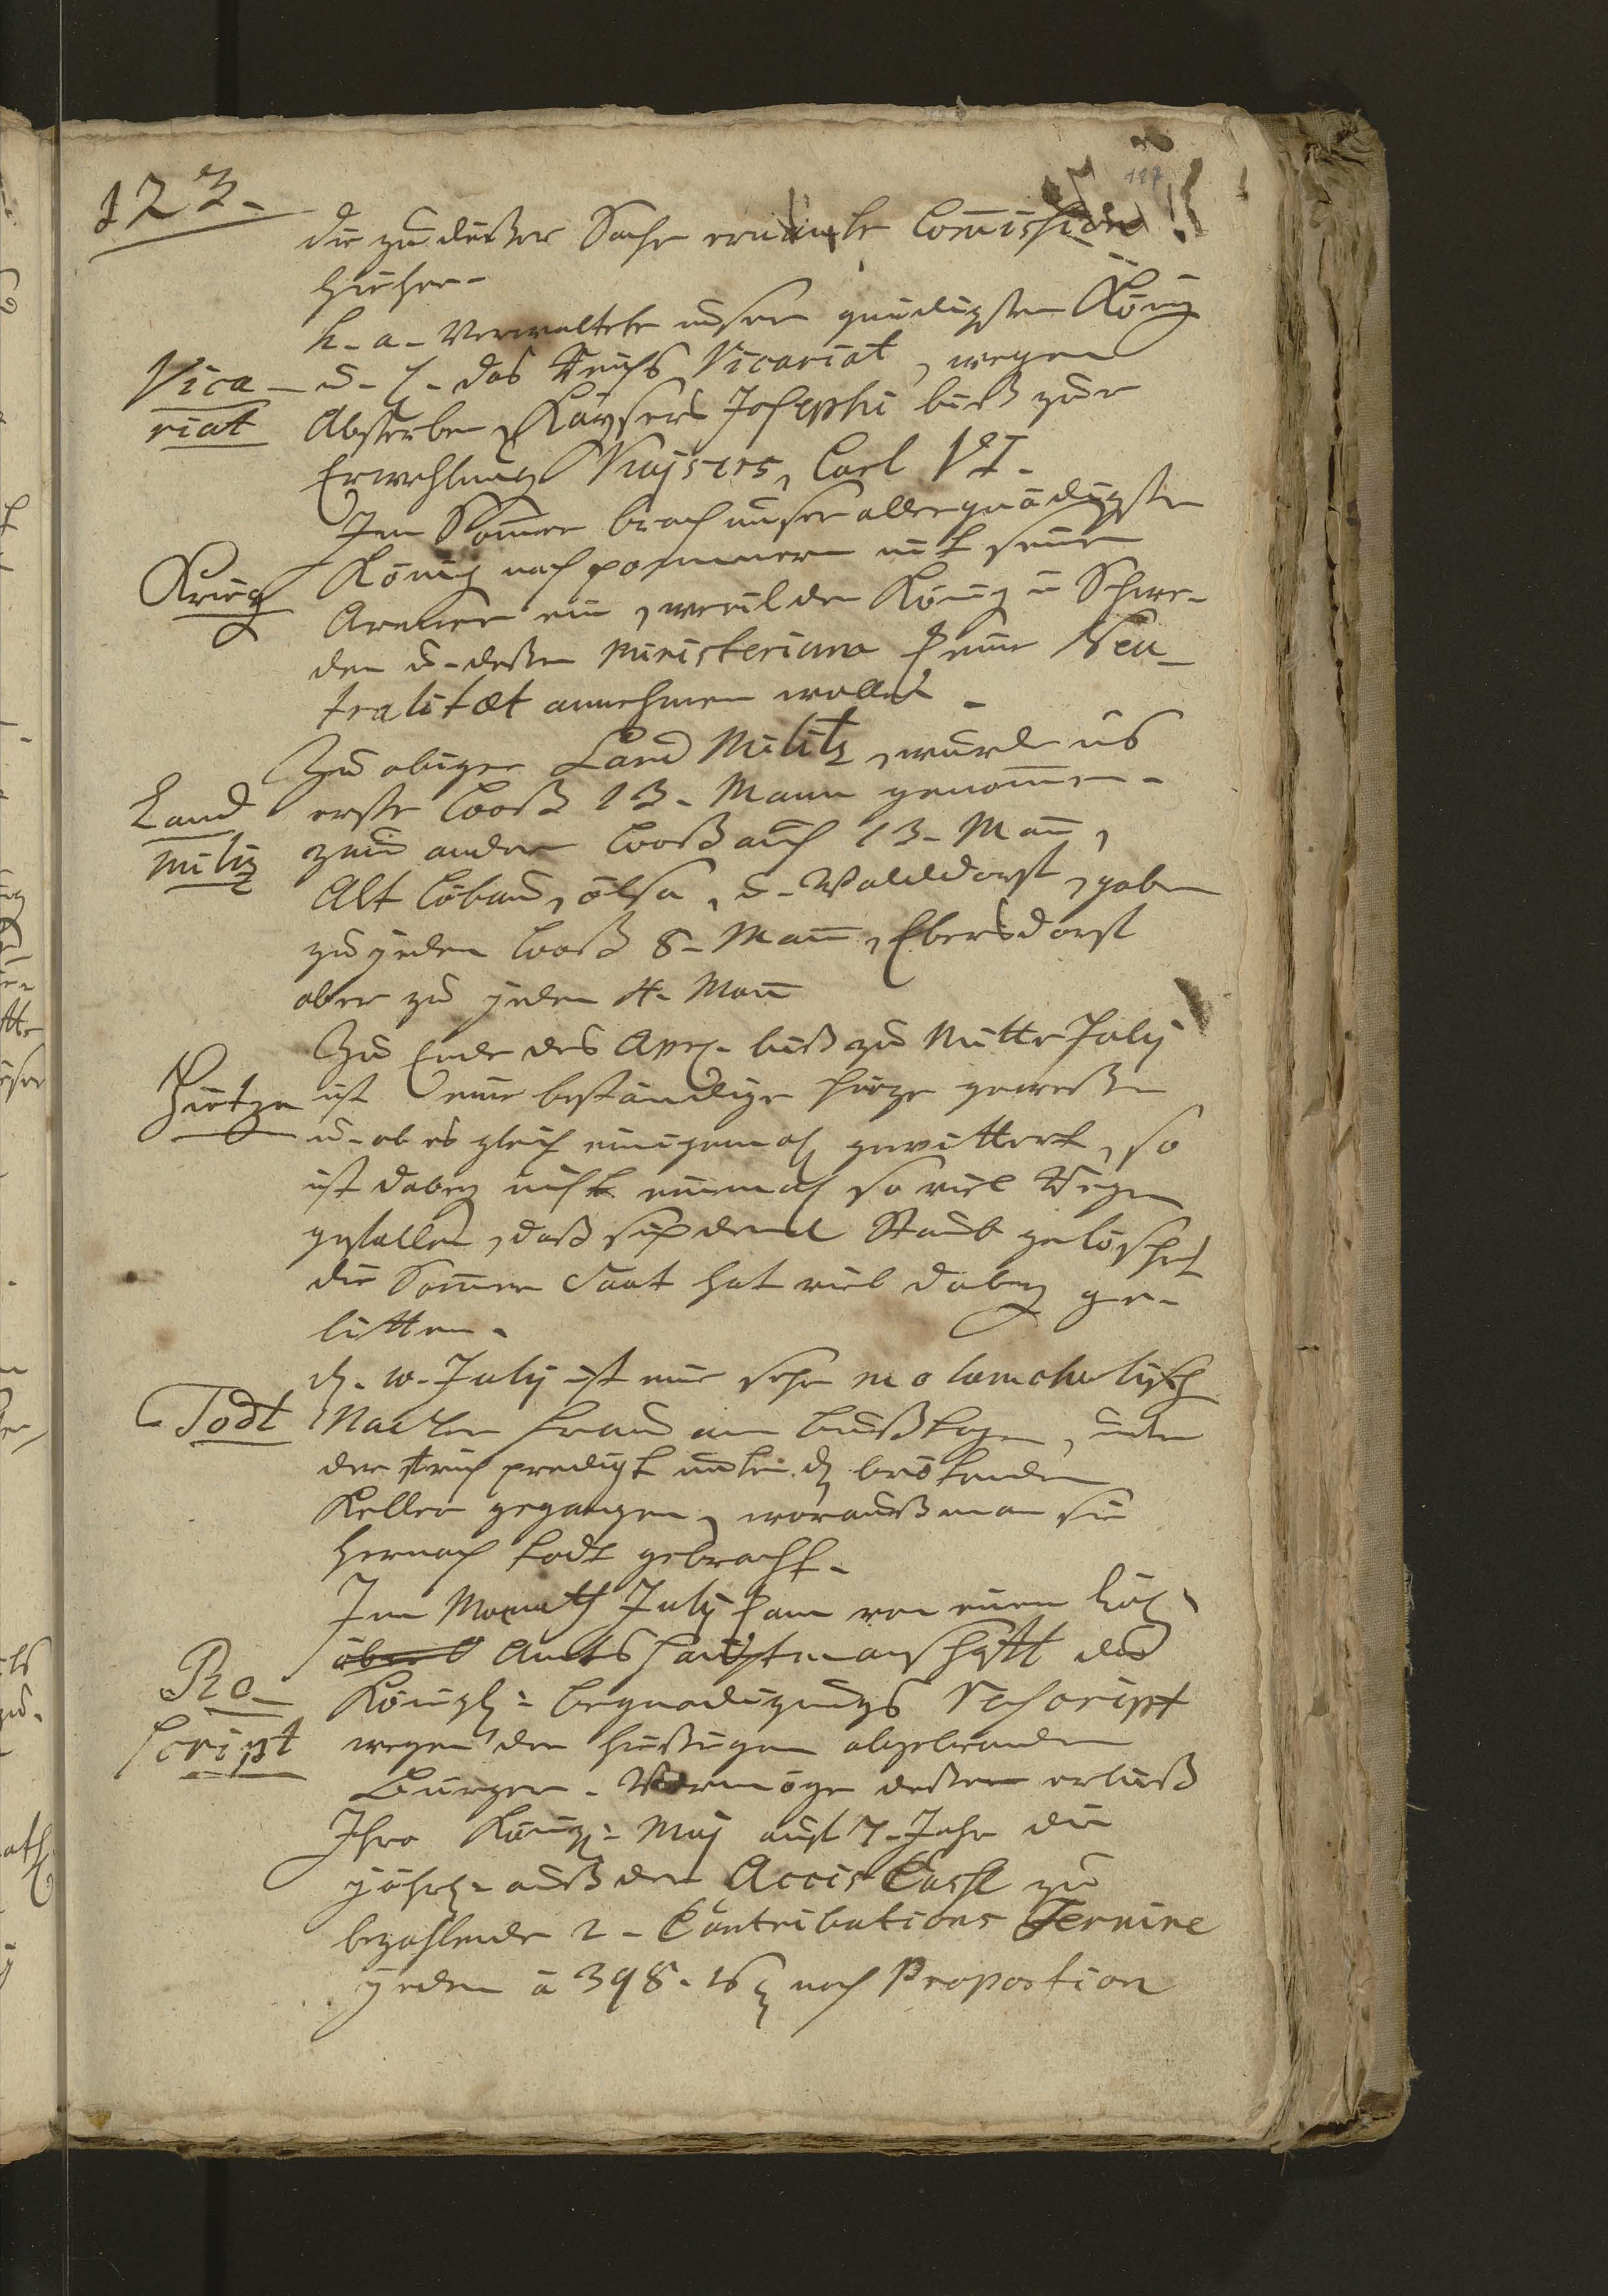 123.
117
die zu dießer Sache ernante Com̄ission
hieher.
h. a. verwaltete unser gnädigster König
Vica-
riat
u. H. das Reichs Vicariat, wegen
Absterben Kaÿsers Josephi biß zur
Erwehlung Kaÿsers, Carl VI.
Im Som̄er brach unser allergnädigster
Krieg
König nach pommern mit seiner
Armee ein, weil der König in Schwe-
den u. deßen Ministerium keine Neu-
tralitæt annehmen wollen.
Zu obiger Land Militz, wurde ins
Land
Militz
erste Looß 13. Mann genom̄en.
zum andern Looß auch 13. Man̄,
Alt Löbau, ölsa, u. Walddorff, gaben
zu jeden Looß 8. Man̄, Ebersdorff
aber zu jeden 4. Man̄
Zu Ende des Apr. biß zu Mitte Julij
Hietze
ist eine beständige hieze geweßen
u. ob es gleich einigemahl gewittert, so
ist dabeÿ nicht einmahl so viel Regen
gefallen, daß sich der Staub gelöschet
die Som̄er Saat hat viel dabeÿ ge-
litten.
d. 10. Julij ist eine sehr melancholisch
Todt
Frau am Bußtage, unter
der früh predigt in den brötenden
Keller gegangen, woraus man sie
hernach todt gebracht.
Im Monath Julij kam von einem Löbl.
ober Amts Hauptmanschafft das
Re-
script
Königl. begnadigungs Rescript
wegen der hießigen abgebranden
Bürger. Vermöge deßen erließ
Ihro Königl. Maj auf 7. Jahr die
jährl. auß der Accis Casse zu
bezahlende 2. Contributions Termine
jeden à 398. nach Proportion